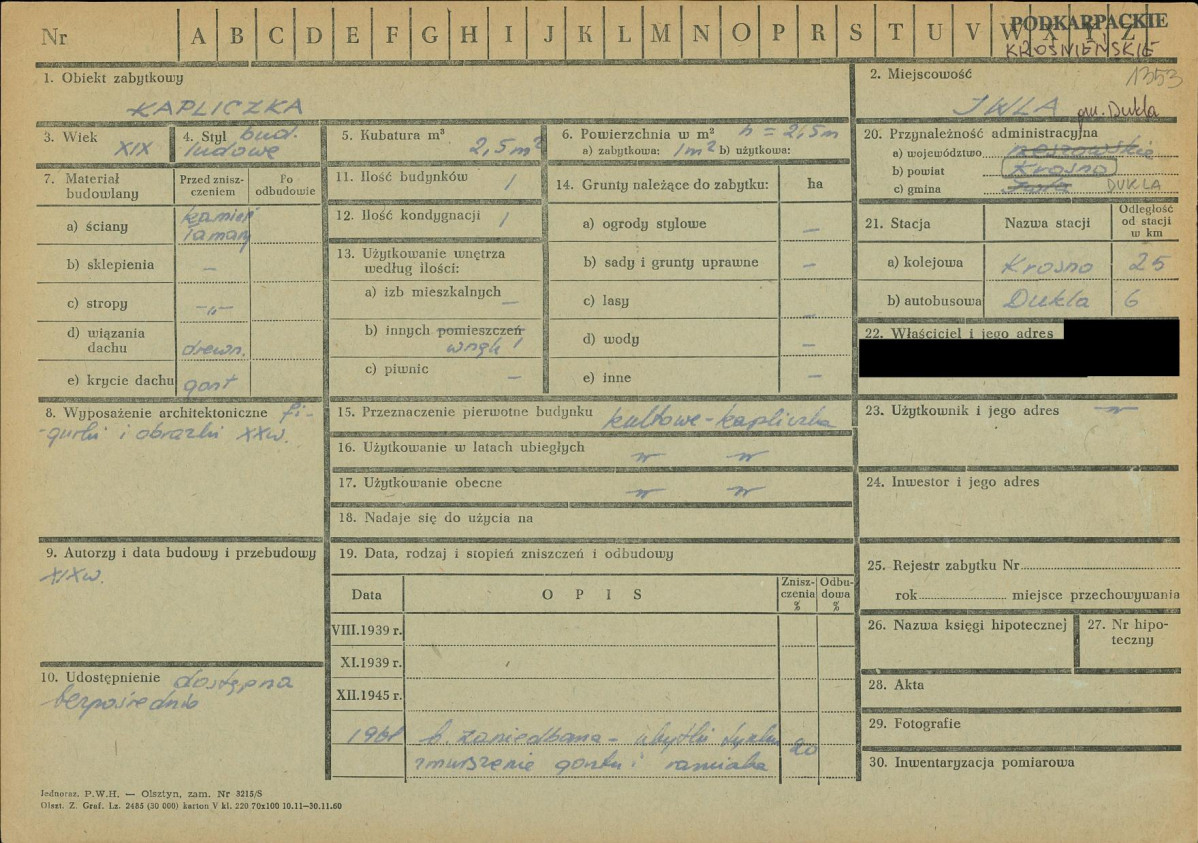 Nr A B C D E F G H I J K L M N O P R S T U V W X Y Z
PODKARPACKIE
KROŚNIEŃSKIE
1353
1. Obiekt zabytkowy
KAPLICZKA
2. Miejscowość
IWLA gm. Dukla
3. Wiek
XIX
4. Styl bud.
ludowe
5. Kubatura m³
2,5 m²
6. Powierzchnia w m² h = 2,5m
a) zabytkowa: 1m² b) użytkowa:
7. Materiał budowlany
Przed zniszczeniem
Po odbudowie
a) ściany
kamień
łamany
b) sklepienia —
c) stropy —„—
d) wiązania dachu drewn.
e) krycie dachu gont
8. Wyposażenie architektoniczne fi-
gurki i obrazki XXw.
9. Autorzy i data budowy i przebudowy
XIXw.
10. Udostępnienie dostępna
bezpośrednio
11. Ilość budynków 1
12. Ilość kondygnacji 1
13. Użytkowanie wnętrza
według ilości:
a) izb mieszkalnych —
b) innych pomieszczeń
wnęk 1
c) piwnic —
14. Grunty należące do zabytku: ha
a) ogrody stylowe —
b) sady i grunty uprawne —
c) lasy —
d) wody —
e) inne —
15. Przeznaczenie pierwotne budynku kultowe - kapliczka
16. Użytkowanie w latach ubiegłych
17. Użytkowanie obecne
18. Nadaje się do użycia na
19. Data, rodzaj i stopień zniszczeń i odbudowy
Data OPIS Zniszczenia % Odbudowa %
VIII.1939 r.
XI.1939 r.
XII.1945 r.
b. zaniedbana - ubytki tynku 20
zmurszenie gontu i
20. Przynależność administracyjna
a) województwo rzeszowskie
b) powiat Krosno
c) gmina DUKLA
21. Stacja Nazwa stacji Odległość od stacji w km
a) kolejowa Krosno 25
b) autobusowa Dukla 6
22. Właściciel i jego adres
23. Użytkownik i jego adres
24. Inwestor i jego adres
25. Rejestr zabytku Nr
rok miejsce przechowywania
26. Nazwa księgi hipotecznej
27. Nr hipoteczny
28. Akta
29. Fotografie
30. Inwentaryzacja pomiarowa
Jednoraz. P.W.H. — Olsztyn, zam. Nr 3215/S
Olszt. Z. Graf. Lz. 2485 (30 000) karton V kl. 220 70x100 10.11-30.11.60